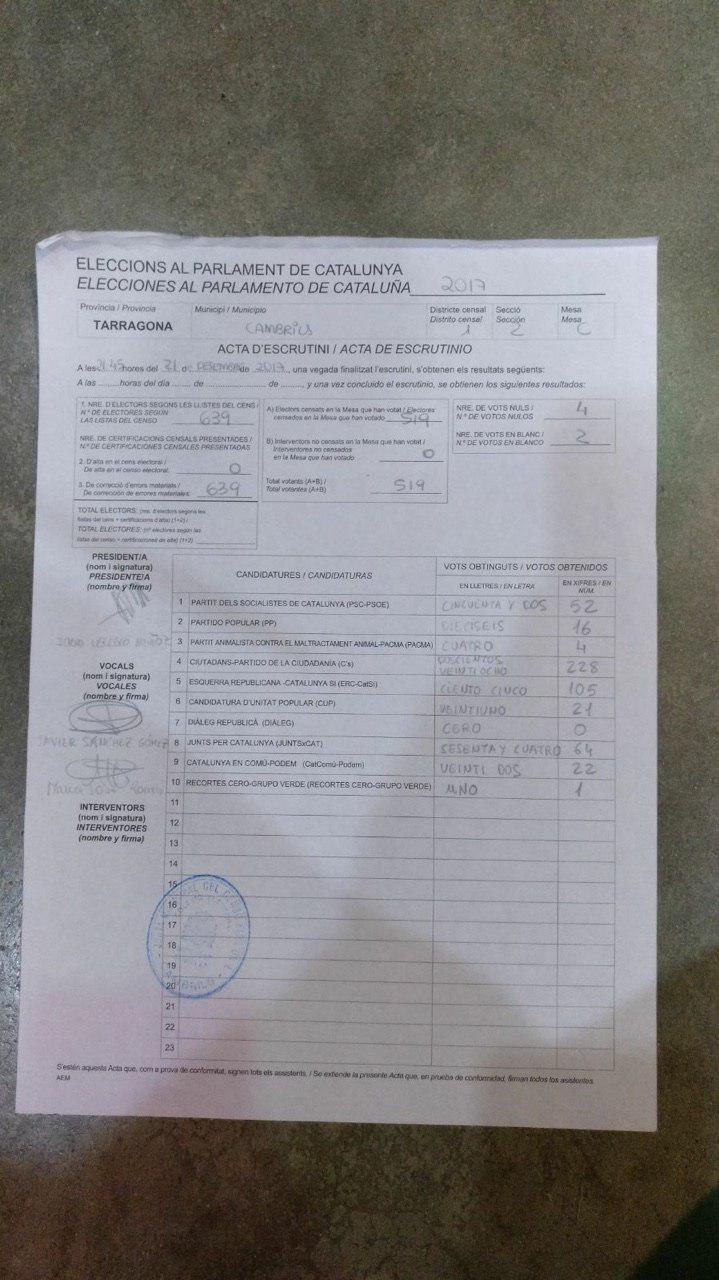 ELECCIONS AL PARLAMENT DE CATALUNYA
ELECCIONES AL PARLAMENTO DE CATALUÑA 2017
Provincia / Provincia Municipi / Municipio Districte censal Secció Mesa
Distrito censal Sección Mesa
TARRAGONA CAMBRILS 1 2 C
ACTA D'ESCRUTINI / ACTA DE ESCRUTINIO
A les 21.45 hores del 21 de DESEMBRE de 2017, una vegada finalitzat l'escrutini, s'obtenen els resultats següents:
A las ......... horas del día ........ de .................... de ........, y una vez concluido el escrutinio, se obtienen los siguientes resultados:
1. NRE. D'ELECTORS SEGONS LES LLISTES DEL CENS /
N.º DE ELECTORES SEGÚN
LAS LISTAS DEL CENSO 639
NRE. DE CERTIFICACIONS CENSALS PRESENTADES /
N.º DE CERTIFICACIONES CENSALES PRESENTADAS
2. D'alta en el cens electoral /
De alta en el censo electoral. 0
3. De correcció d'errors materials /
De corrección de errores materiales. 639
TOTAL ELECTORS: (nre. d'electors segons les
llistes del cens + certificacions d'alta) (1+2) /
TOTAL ELECTORES: (nº electores según las
listas del censo + certificaciones de alta) (1+2)
A) Electors censats en la Mesa que han votat / Electores
censados en la Mesa que han votado 519
B) Interventors no censats en la Mesa que han votat /
Interventores no censados
en la Mesa que han votado 0
Total votants (A+B) /
Total votantes (A+B) 519
NRE. DE VOTS NULS /
N.º DE VOTOS NULOS 4
NRE. DE VOTS EN BLANC /
N.º DE VOTOS EN BLANCO 2
PRESIDENT/A
(nom i signatura)
PRESIDENTE/A
(nombre y firma)
VOCALS
(nom i signatura)
VOCALES
(nombre y firma)
JAVIER SÁNCHEZ GÓMEZ
INTERVENTORS
(nom i signatura)
INTERVENTORES
(nombre y firma)
CANDIDATURES / CANDIDATURAS VOTS OBTINGUTS / VOTOS OBTENIDOS
EN LLETRES / EN LETRA EN XIFRES / EN NÚM.
1 PARTIT DELS SOCIALISTES DE CATALUNYA (PSC-PSOE) CINCUENTA Y DOS 52
2 PARTIDO POPULAR (PP) DIECISEIS 16
3 PARTIT ANIMALISTA CONTRA EL MALTRACTAMENT ANIMAL-PACMA (PACMA) CUATRO 4
4 CIUTADANS-PARTIDO DE LA CIUDADANÍA (C's) DOSCIENTOS VEINTIOCHO 228
5 ESQUERRA REPUBLICANA -CATALUNYA SÍ (ERC-CatSí) CIENTO CINCO 105
6 CANDIDATURA D'UNITAT POPULAR (CUP) VEINTIUNO 21
7 DIÀLEG REPUBLICÀ (DIÀLEG) CERO 0
8 JUNTS PER CATALUNYA (JUNTSxCAT) SESENTA Y CUATRO 64
9 CATALUNYA EN COMÚ-PODEM (CatComú-Podem) VEINTI DOS 22
10 RECORTES CERO-GRUPO VERDE (RECORTES CERO-GRUPO VERDE) UNO 1
11
12
13
14
15
16
17
18
19
20
21
22
23
S'estén aquesta Acta que, com a prova de conformitat, signen tots els assistents. / Se extiende la presente Acta que, en prueba de conformidad, firman todos los asistentes.
AEM